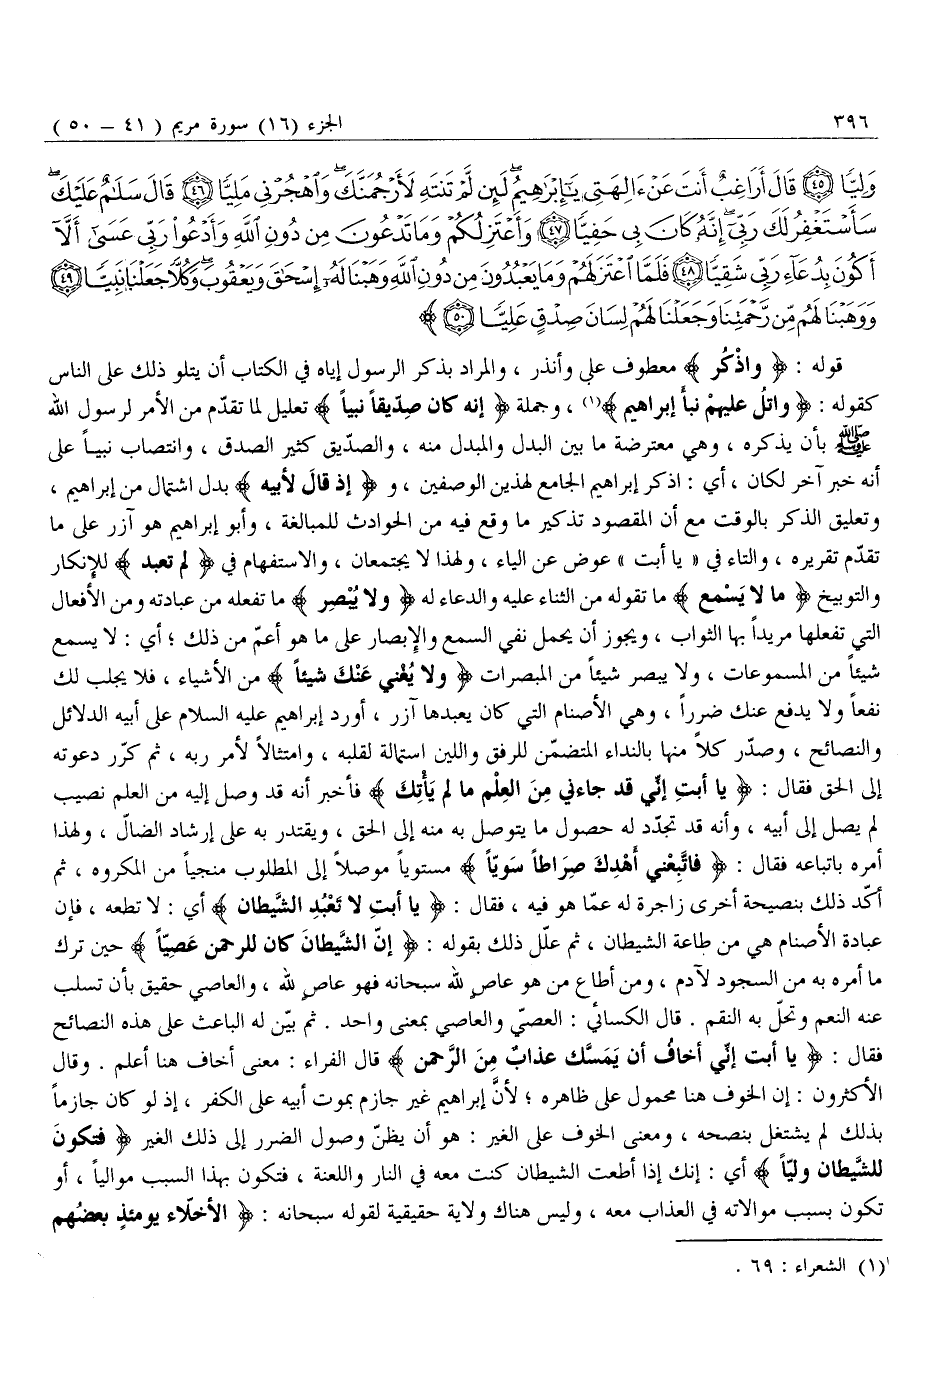 ٣٩٦ الجزء (١٦) سورة مريم ( ٤١ – ٥٠ )
وَلِيًّا ٤٥ قَالَ أَرَاغِبٌ أَنتَ عَنْ ءَالِهَتِى يَٰٓإِبْرَٰهِيمُ ۖ لَئِن لَّمْ تَنتَهِ لَأَرْجُمَنَّكَ ۖ وَٱهْجُرْنِى مَلِيًّا ٤٦ قَالَ سَلَٰمٌ عَلَيْكَ ۖ
سَأَسْتَغْفِرُ لَكَ رَبِّىٓ ۖ إِنَّهُۥ كَانَ بِى حَفِيًّا ٤٧ وَأَعْتَزِلُكُمْ وَمَا تَدْعُونَ مِن دُونِ ٱللَّهِ وَأَدْعُوا۟ رَبِّى عَسَىٰٓ أَلَّآ
أَكُونَ بِدُعَآءِ رَبِّى شَقِيًّا ٤٨ فَلَمَّا ٱعْتَزَلَهُمْ وَمَا يَعْبُدُونَ مِن دُونِ ٱللَّهِ وَهَبْنَا لَهُۥٓ إِسْحَٰقَ وَيَعْقُوبَ ۖ وَكُلًّا جَعَلْنَا نَبِيًّا ٤٩
وَوَهَبْنَا لَهُم مِّن رَّحْمَتِنَا وَجَعَلْنَا لَهُمْ لِسَانَ صِدْقٍ عَلِيًّا ٥٠ ﴾
قوله : ﴿ واذْكُر ﴾ معطوف على وأنذر ، والمراد بذكر الرسول إياه في الكتاب أن يتلو ذلك على الناس
كقوله : ﴿ واتلُ عليهمْ نبأ إبراهيم ﴾(١) ، وجملة ﴿ إنه كان صدّيقاً نبياً ﴾ تعليل لما تقدّم من الأمر لرسول الله
ﷺ بأن يذكره ، وهي معترضة ما بين البدل والمبدل منه ، والصدّيق كثير الصدق ، وانتصاب نبياً على
أنه خبر آخر لكان ، أي : اذكر إبراهيم الجامع لهذين الوصفين ، و ﴿ إذ قالَ لأبيه ﴾ بدل اشتمال من إبراهيم ،
وتعليق الذكر بالوقت مع أن المقصود تذكير ما وقع فيه من الحوادث للمبالغة ، وأبو إبراهيم هو آزر على ما
تقدّم تقريره ، والتاء في « يا أبت » عوض عن الياء ، ولهذا لا يجتمعان ، والاستفهام في ﴿ لم تعبد ﴾ للإنكار
والتوبيخ ﴿ ما لا يَسْمع ﴾ ما تقوله من الثناء عليه والدعاء له ﴿ ولا يُبْصِر ﴾ ما تفعله من عبادته ومن الأفعال
التي تفعلها مريداً بها الثواب ، ويجوز أن يحمل نفي السمع والإبصار على ما هو أعمّ من ذلك ؛ أي : لا يسمع
شيئاً من المسموعات ، ولا يبصر شيئاً من المبصرات ﴿ ولا يُغْني عَنْكَ شيئاً ﴾ من الأشياء ، فلا يجلب لك
نفعاً ولا يدفع عنك ضرراً ، وهي الأصنام التي كان يعبدها آزر ، أورد إبراهيم عليه السلام على أبيه الدلائل
والنصائح ، وصدّر كلاً منها بالنداء المتضمّن للرفق واللين استمالة لقلبه ، وامتثالاً لأمر ربه ، ثم كرّر دعوته
إلى الحق فقال : ﴿ يا أبتِ إنّي قد جاءني مِنَ العِلْم ما لم يَأْتِكَ ﴾ فأخبر أنه قد وصل إليه من العلم نصيب
لم يصل إلى أبيه ، وأنه قد تجدّد له حصول ما يتوصل به منه إلى الحق ، ويقتدر به على إرشاد الضالّ ، ولهذا
أمره باتباعه فقال : ﴿ فاتَّبِعْني أَهْدِكَ صِرَاطاً سَويّاً ﴾ مستوياً موصلاً إلى المطلوب منجياً من المكروه ، ثم
أكّد ذلك بنصيحة أخرى زاجرة له عمّا هو فيه ، فقال : ﴿ يا أبتِ لا تَعْبُدِ الشَّيطان ﴾ أي : لا تطعه ، فإن
عبادة الأصنام هي من طاعة الشيطان ، ثم علّل ذلك بقوله : ﴿ إنّ الشَّيطانَ كان للرحمن عَصِيّاً ﴾ حين ترك
ما أمره به من السجود لآدم ، ومن أطاع من هو عاصٍ لله سبحانه فهو عاصٍ لله ، والعاصي حقيق بأن تسلب
عنه النعم وتحلّ به النقم . قال الكسائي : العصيّ والعاصي بمعنى واحد . ثم بيّن له الباعث على هذه النصائح
فقال : ﴿ يا أبت إنّي أخافُ أن يَمَسَّك عذابٌ مِنَ الرَّحمن ﴾ قال الفراء : معنى أخاف هنا أعلم . وقال
الأكثرون : إن الخوف هنا محمول على ظاهره ؛ لأنَّ إبراهيم غير جازم بموت أبيه على الكفر ، إذ لو كان جازماً
بذلك لم يشتغل بنصحه ، ومعنى الخوف على الغير : هو أن يظنّ وصول الضرر إلى ذلك الغير ﴿ فتكونَ
للشَّيطان وليّاً ﴾ أي : إنك إذا أطعت الشيطان كنت معه في النار واللعنة ، فتكون بهذا السبب موالياً ، أو
تكون بسبب موالاته في العذاب معه ، وليس هناك ولاية حقيقية لقوله سبحانه : ﴿ الأخلّاء يومئذٍ بعضُهم
(١) الشعراء : ٦٩ .